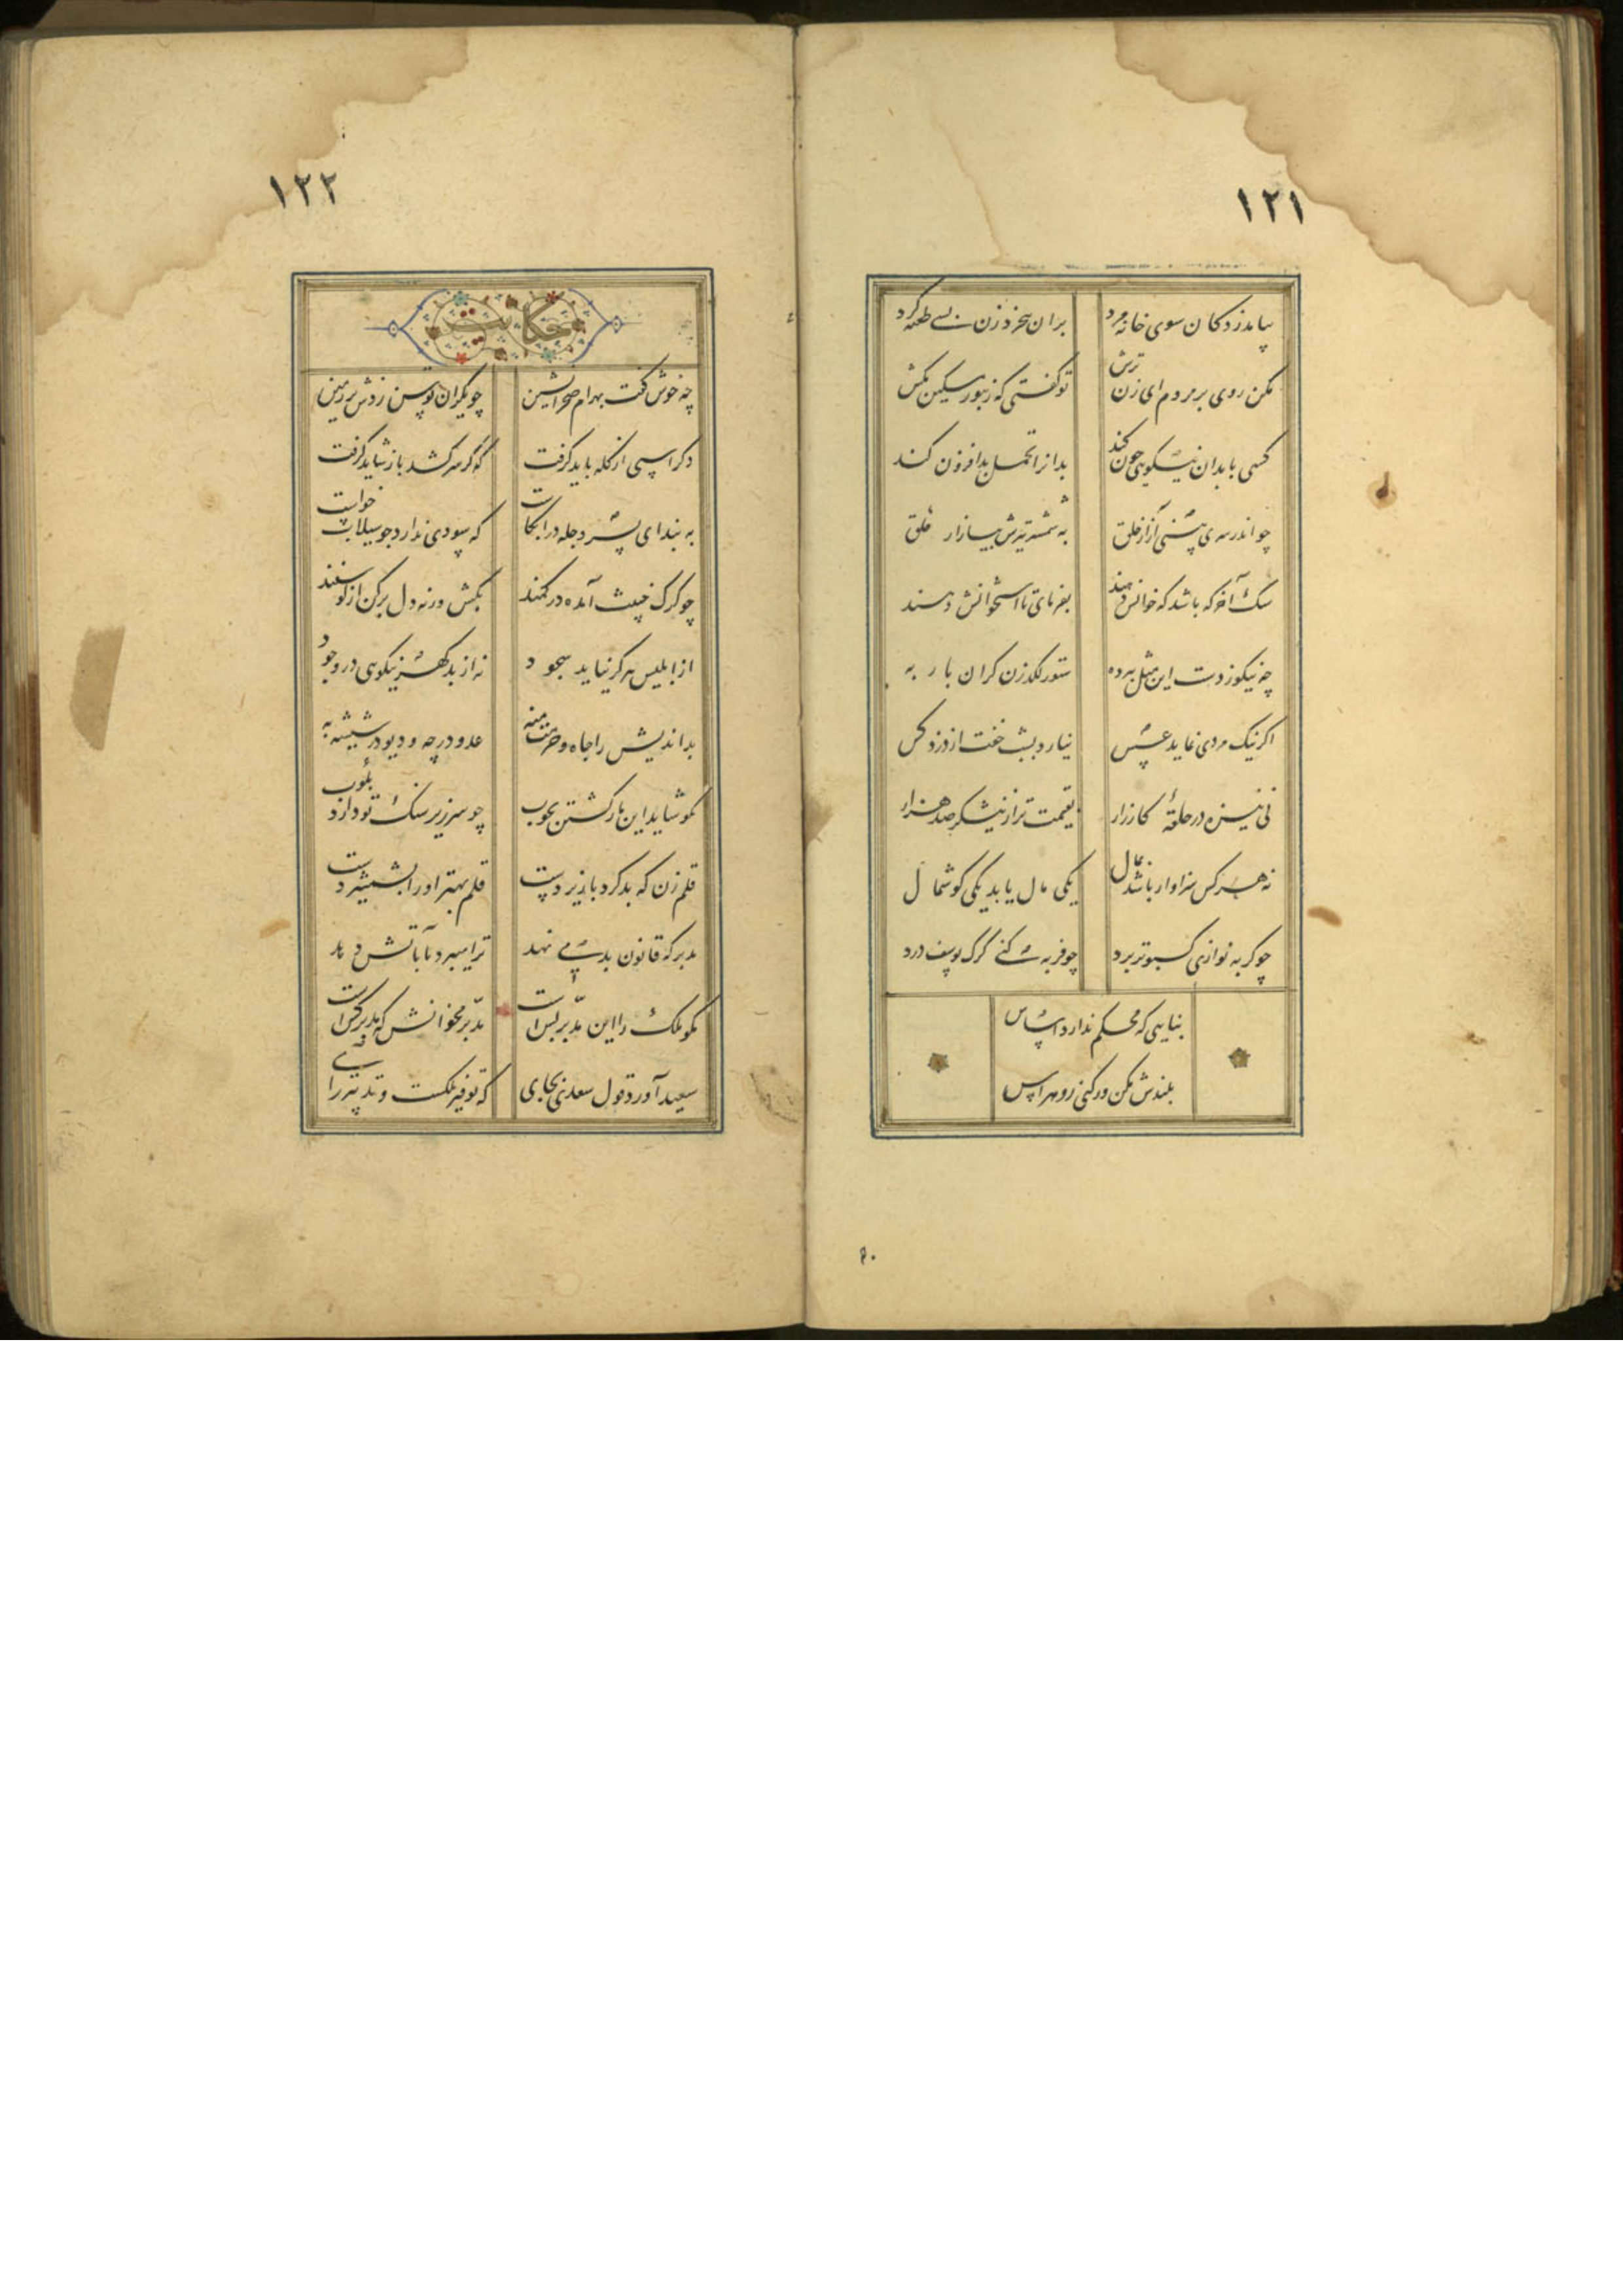 ۱۲۱
بیامد ز دکان سوی خانه مرد
بران بیخرد زن بسی طعنه کرد
مکن روی بر مردم ای زن ترش
تو گفتی که زنبور مسکین مکش
کسی با بدان نیکویی چون کند
بدانرا تحمل بد افزون کند
چو اندر سری بینی آزار خلق
به شمشیر تیزش بیازار حلق
سک آخر که باشد که خوانش نهند
بفرمای تا استخوانش دهند
چه نیکو زدست این مثل پیر ده
ستور لکدزن کران بار به
اکر نیک مردی نماید عسس
نیارد بشب خفت از دزد کس
نی نیزه در حلقهٔ کارزار
بقیمت تر از نیشکر صد هزار
نه هر کس سزاوار باشد بمال
یکی مال یابد یکی کوشمال
چو کربه نوازی کبوتر برد
چو فربه کنی کرک یوسف درد
بنایی که محکم ندارد اساس
بلندش مکن ور کنی زو هراس
۱۲۲
حکایت
چه خوش کفت بهرام صحرانشین
چو یکران توسن زدش بر زمین
دکر اسپی از کله باید کرفت
که کر سر کشد باز شاید کرفت
به بند ای پسر دجله در آب کاست
که سودی ندارد چو سیلاب خواست
چو کرک خبیث آمده در کمند
بکش ورنه دل برکن از کوسفند
از ابلیس هرکز نیاید سجود
نه از بدکهر نیکویی در وجود
بداندیش را جاه و فرصت مده
عدو در چه و دیو در شیشه به
مکو شاید این مار کشتن بچوب
چو سر زیر سنک تو دارد بکوب
قلم زن که بد کرد با زیردست
قلم بهتر او را بشمشیر دست
مدبر که قانون بد می نهد
ترا میبرد تا بآتش دهد
مکو ملک را این مدبّر بس است
مدبّر مخوانش که مدبر کس است
سعید آورد قول سعدی بجای
که توفیر ملکست و تدبیر رای